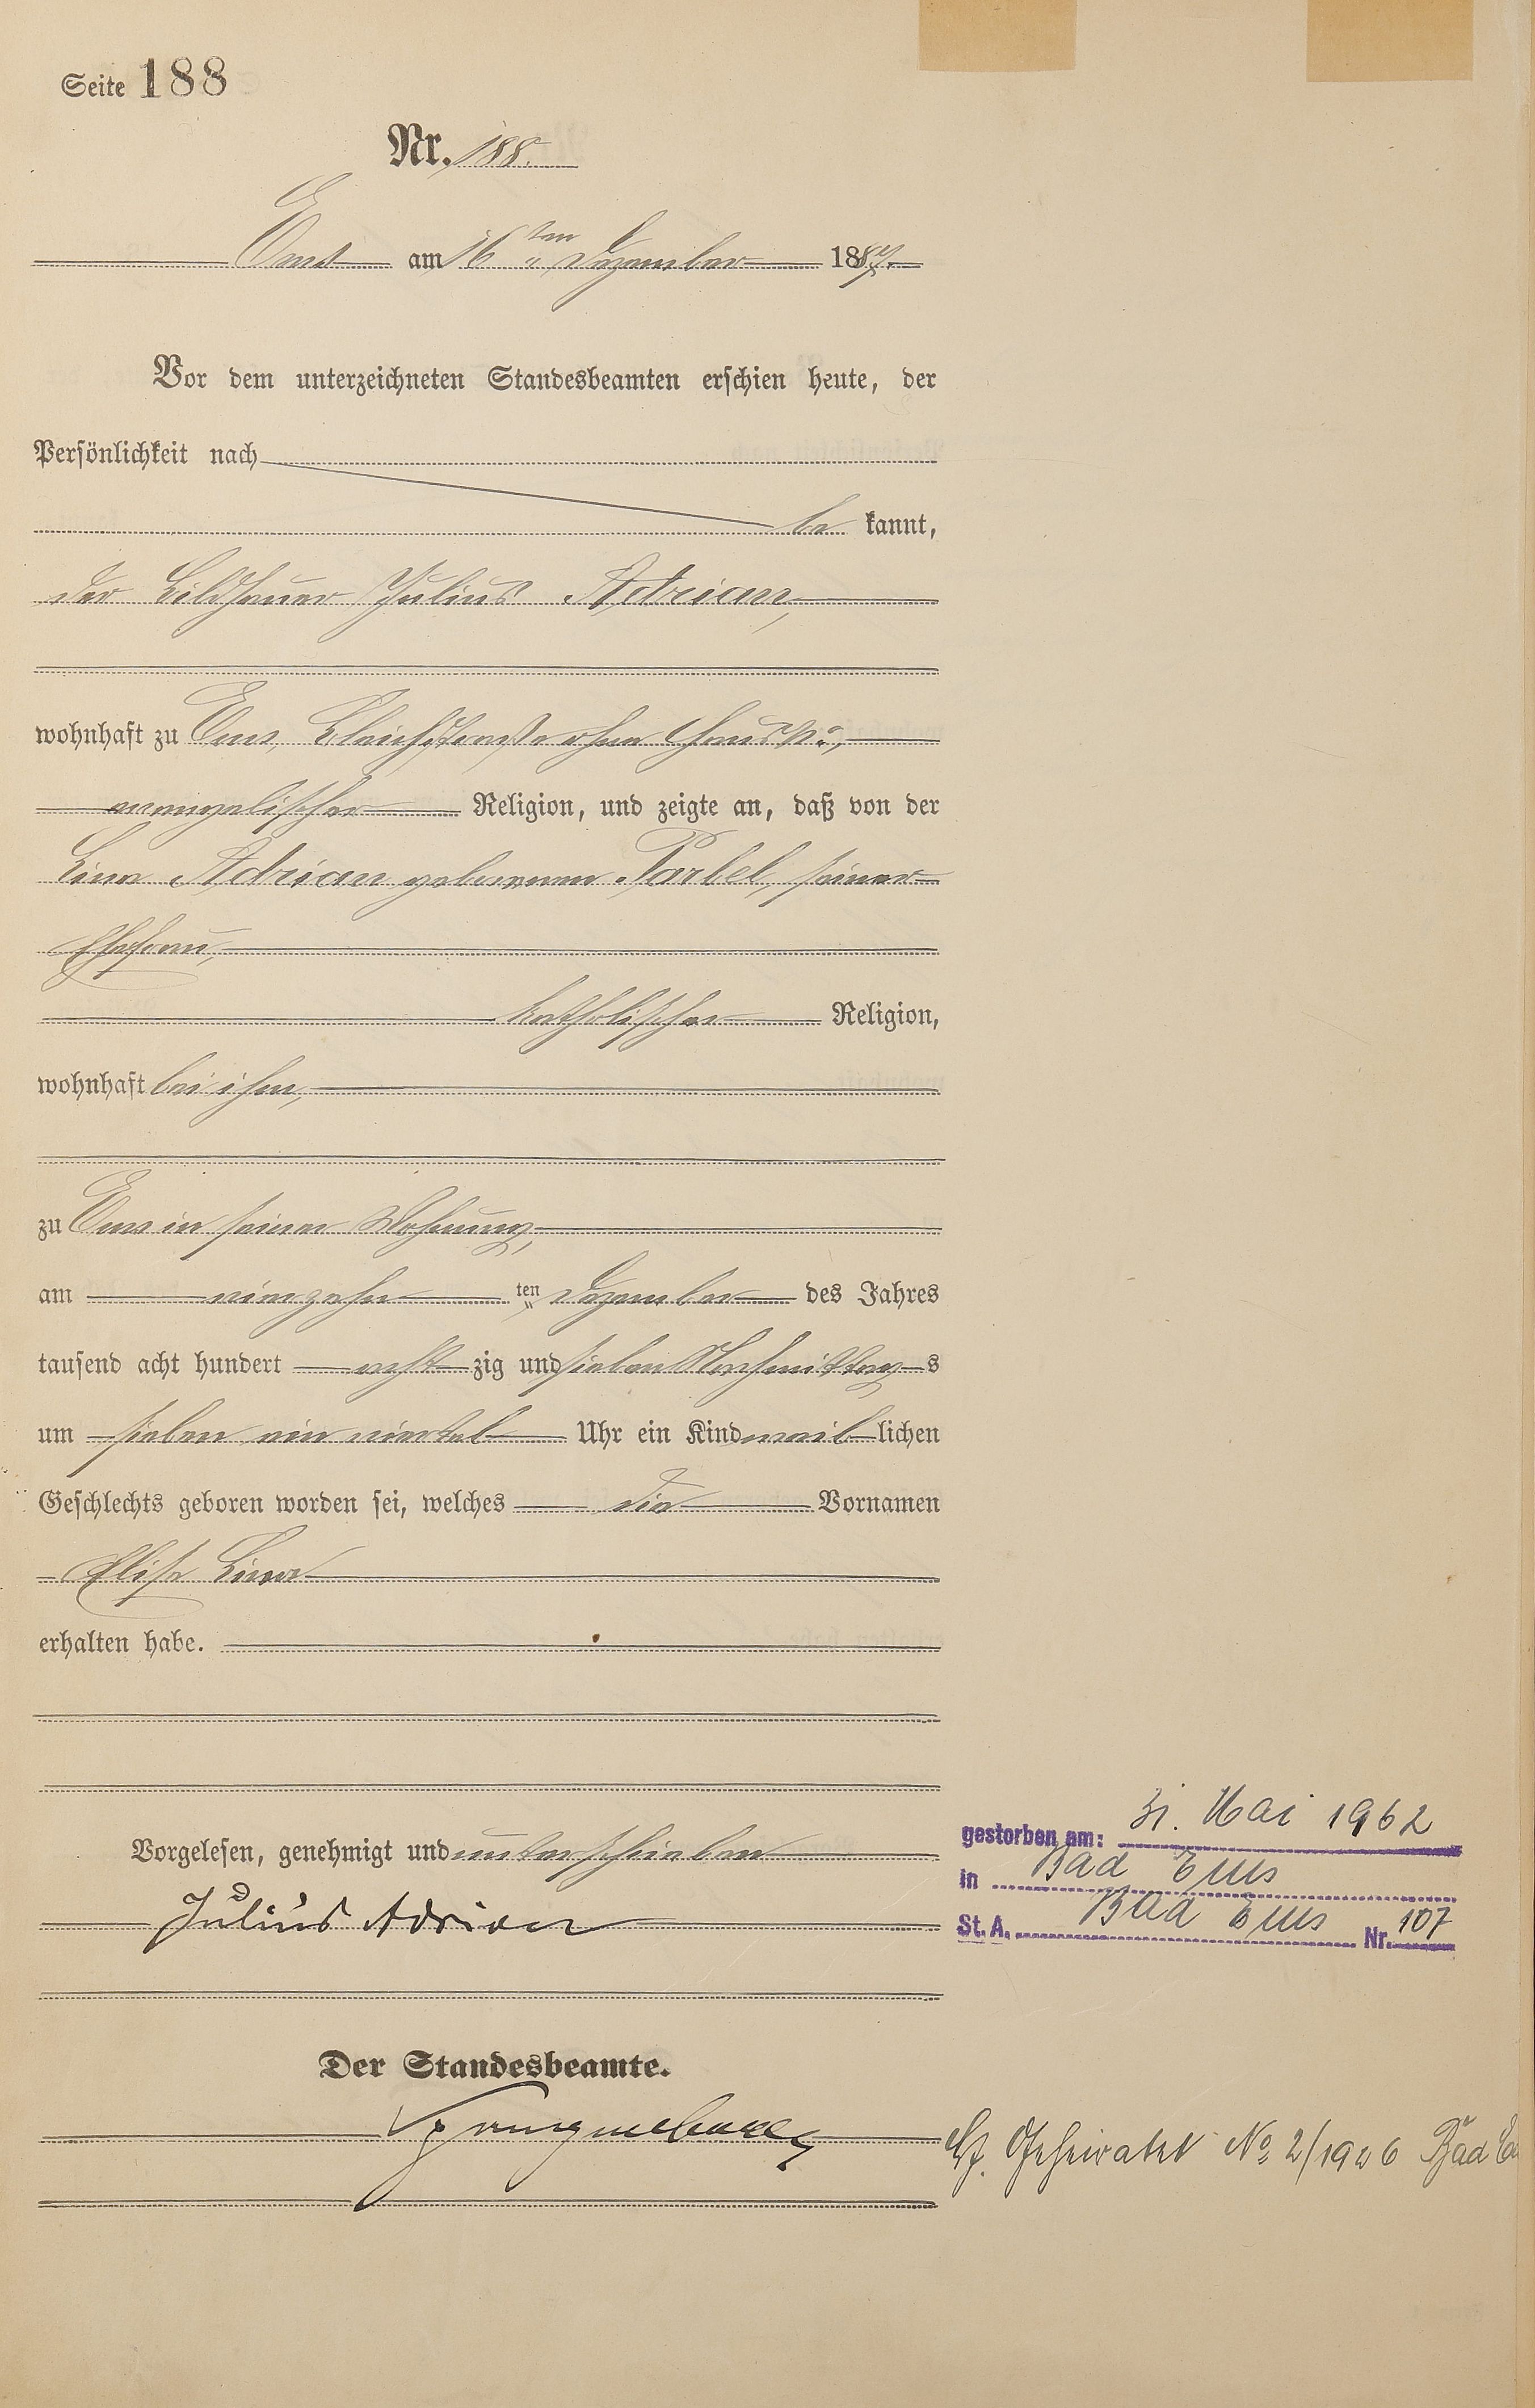 Seite 188
Nr. 188.
Ems am 16ten Dezember 1887.
Vor dem unterzeichneten Standesbeamten erschien heute, der
Persönlichkeit nach
be kannt,
der Bildhauer Julius Adrian,
wohnhaft zu Ems, Bleichstraße ohne Haus No,
evangelischer Religion, und zeigte an, daß von der
Lina Adrian geborenen Parbel, seiner
Ehefrau,
katholischer Religion,
wohnhaft bei ihm,
zu Ems in seiner Wohnung,
am vierzehn ten Dezember des Jahres
tausend acht hundert acht zig und sieben Nachmittag s
um sieben ein viertel Uhr ein Kind weib lichen
Geschlechts geboren worden sei, welches die Vornamen
Elise Lina
erhalten habe.
Vorgelesen, genehmigt und unterschrieben
Julius Adrian
gestorben am: 31. Mai 1962
in Bad Ems
St. A. Bad Ems Nr. 107
Der Standesbeamte.
Geheiratet No 2/1926 Bad